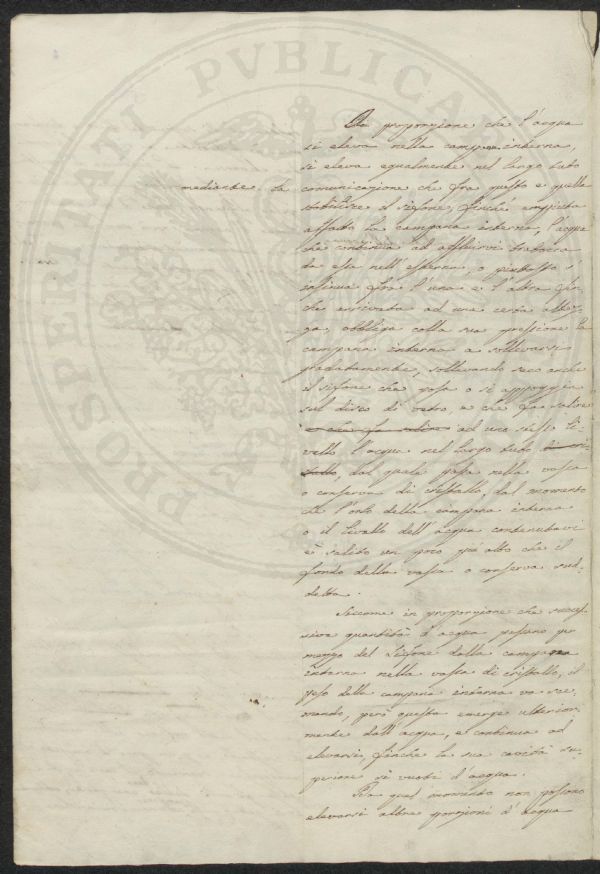 PROSPERITATI PVBLICAE
A proporzione che l'acqua
si eleva nella campana interna,
si eleva egualmente nel largo tubo
mediante la comunicazione che fra questo e quella
stabilisce il sifone, finché empiuta
affatto la campana interna, l'acqua
che continua ad affluirvi trabocca
da essa nell'esterna, o piuttosto s'
insinua fra l'una e l'altra fin,,
che arrivata ad una certa altez,,
za, obbliga colla sua pressione la
campana interna a sollevarsi
gradatamente, sollevando seco anche
il sifone che posa o si appoggia
sul disco di vetro, e che fa salire
e che fa salire ad uno stesso li,,
vello l'acqua nel largo tubo di cri,,
stallo, dal quale passa nella vasca
o conserva di cristallo, dal momento
che l'orlo della campana interna
o il livello dell'acqua contenutavi
è salito un poco più alto che il
fondo della vasca o conserva sud,,
detta.
Siccome in proporzione che succes,,
sive quantità d'acqua passano per
mezzo del sifone dalla campana
interna nella vasca di cristallo, il
peso della campana interna va sce,,
mando, però questa emerge ulterior,,
mente dall'acqua, e continua ad
elevarsi, finché la sua cavità su,,
periore si vuoti d'acqua.
Da quel momento non possono
elevarsi altre porzioni d'acqua